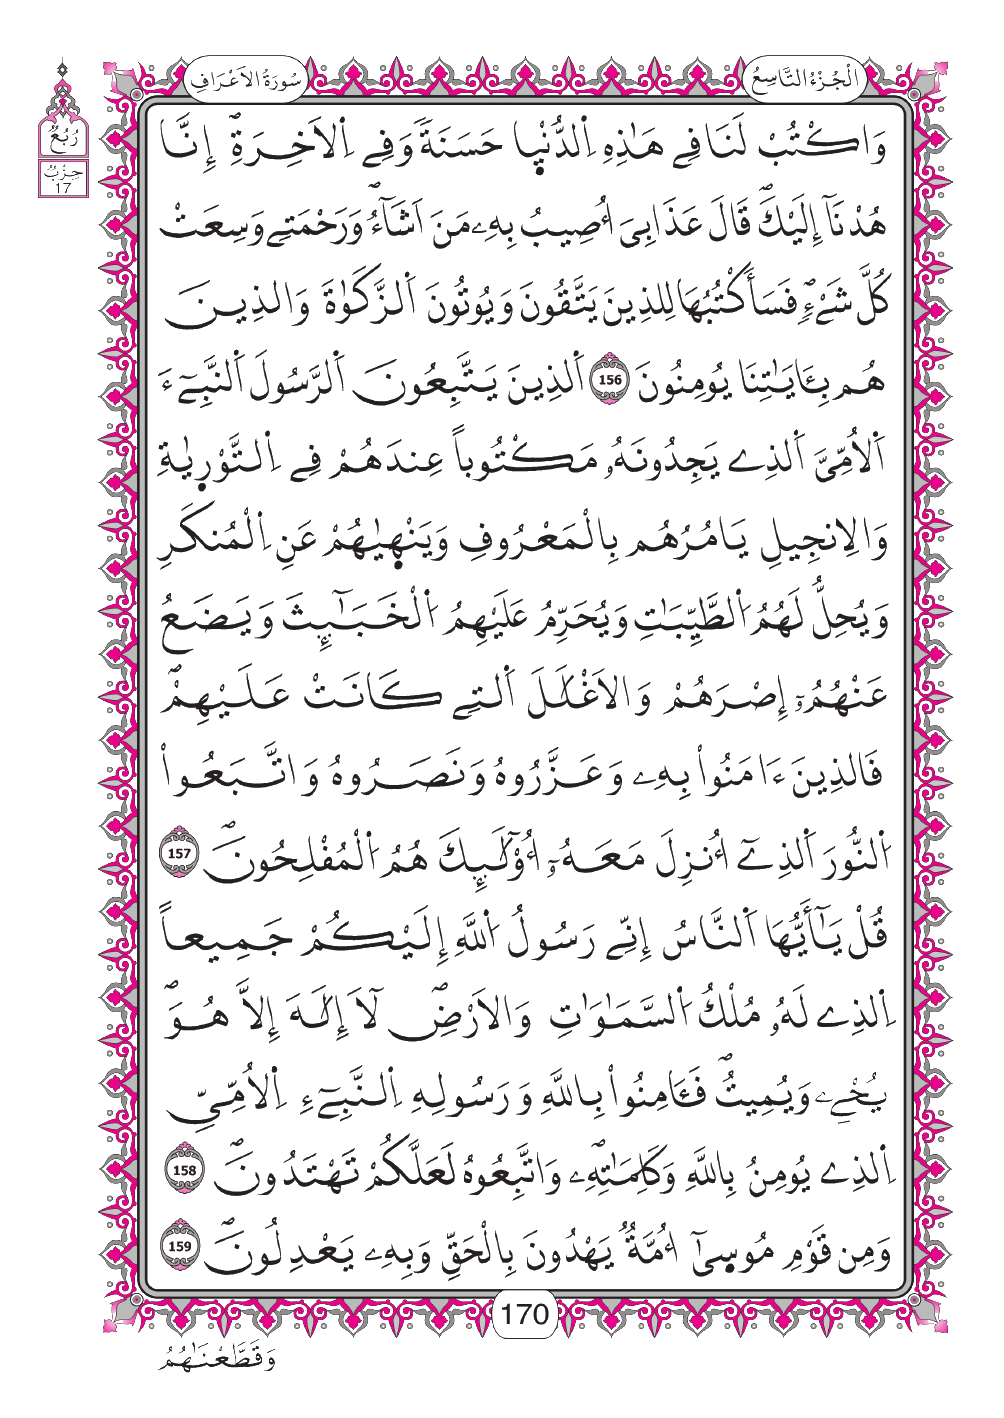 الْجُزْءُ التَّاسِعُ
سُورَةُ الَاعْرَافِ
رُبُعُ
حِزْبُ
17
وَاكْتُبْ لَنَا فِے هَٰذِهِ اِ۬لدُّنْي۪ا حَسَنَةٗ وَفِے اِ۬لَاخِرَةِۖ إِنَّا
هُدْنَآ إِلَيْكَۖ قَالَ عَذَابِيَ أُصِيبُ بِهِۦ مَنَ اَشَآءُۖ وَرَحْمَتِے وَسِعَتْ
كُلَّ شَےْءٖۖ فَسَأَكْتُبُهَا لِلذِينَ يَتَّقُونَ وَيُوتُونَ اَ۬لزَّكَوٰةَ وَالذِينَ
هُم بِـَٔايَٰتِنَا يُومِنُونَ 156 اَ۬لذِينَ يَتَّبِعُونَ اَ۬لرَّسُولَ اَ۬لنَّبِےٓءَ
اَ۬لُامِّيَّ اَ۬لذِے يَجِدُونَهُۥ مَكْتُوباً عِندَهُمْ فِے اِ۬لتَّوْر۪يٰةِ
وَالِانجِيلِ يَامُرُهُم بِالْمَعْرُوفِ وَيَنْه۪يٰهُمْ عَنِ اِ۬لْمُنكَرِ
وَيُحِلُّ لَهُمُ اُ۬لطَّيِّبَٰتِ وَيُحَرِّمُ عَلَيْهِمُ اُ۬لْخَبَٰٓئِثَ وَيَضَعُ
عَنْهُمُۥٓ إِصْرَهُمْ وَالَاغْلَٰلَ اَ۬لتِے كَانَتْ عَلَيْهِمْۖ
فَالذِينَ ءَامَنُواْ بِهِۦ وَعَزَّرُوهُ وَنَصَرُوهُ وَاتَّبَعُواْ
اُ۬لنُّورَ اَ۬لذِےٓ أُنزِلَ مَعَهُۥٓ أُوْلَٰٓئِكَ هُمُ اُ۬لْمُفْلِحُونَۖ 157
قُلْ يَٰٓأَيُّهَا اَ۬لنَّاسُ إِنِّے رَسُولُ اُ۬للَّهِ إِلَيْكُمْ جَمِيعاً
اِ۬لذِے لَهُۥ مُلْكُ اُ۬لسَّمَٰوَٰتِ وَالَارْضِۖ لَآ إِلَٰهَ إِلَّا هُوَۖ
يُحْيِۦ وَيُمِيتُۖ فَـَٔامِنُواْ بِاللَّهِ وَرَسُولِهِ اِ۬لنَّبِےٓءِ اِ۬لُامِّيِّ
اِ۬لذِے يُومِنُ بِاللَّهِ وَكَلِمَٰتِهِۦۖ وَاتَّبِعُوهُ لَعَلَّكُمْ تَهْتَدُونَۖ 158
وَمِن قَوْمِ مُوس۪يٰٓ أُمَّةٞ يَهْدُونَ بِالْحَقِّ وَبِهِۦ يَعْدِلُونَۖ 159
170
وَقَطَّعْنَٰهُمُ